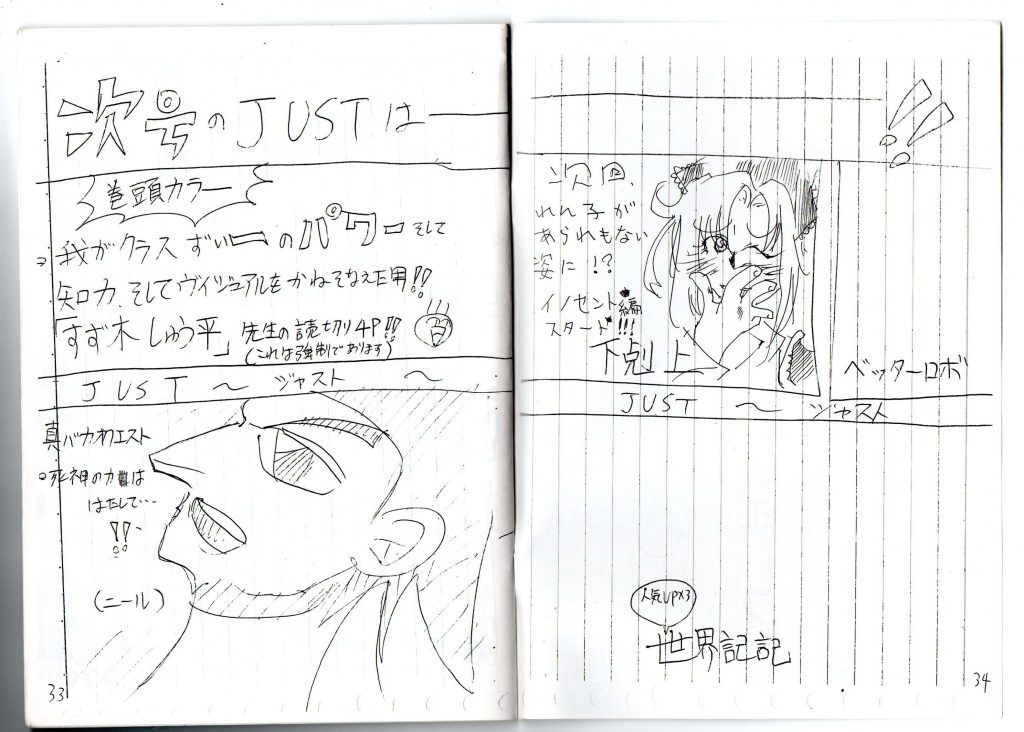 次号のJUSTは
!!
巻頭カラー
我がクラスずいーのパワーそして
知力、そしてヴィジュアルをかねそなえた男!!
「すず木しゅう平」先生の読切り4P!!
(これは強制であります)
JUST 〜 ジャスト 〜
真バカオクエスト
死神の力は
はたして…
!!
(ニール)
33
次回、
れん子が
あられもない
姿に!?
イノセント編
スタート!!!
下剋上
ベッターロボ
JUST 〜 ジャスト
人気UP×3
世界記記
34